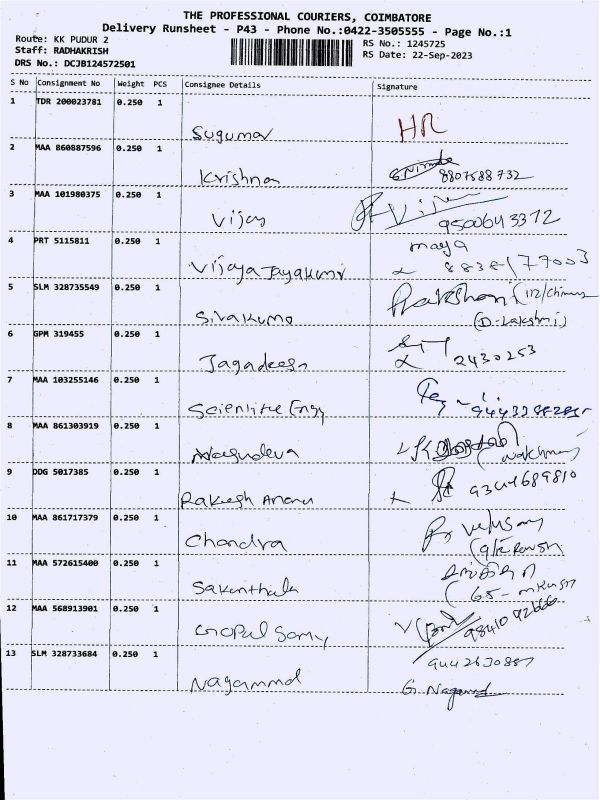 THE PROFESSIONAL COURIERS, COIMBATORE
Delivery Runsheet - P43 - Phone No.:0422-3505555 - Page No.:1
Route: KK PUDUR 2
Staff: RADHAKRISH
DRS No.: DCJB124572501
RS No.: 1245725
RS Date: 22-Sep-2023
S No Consignment No Weight PCS Consignee Details Signature
1 TDR 200023781 0.250 1
Sugumar HR
2 MAA 860887596 0.250 1
Krishnan 8807588732
3 MAA 101980375 0.250 1
Vijay Vijay 9500643372
4 PRT 5115811 0.250 1
Vijaya Jayakumri maya
8838177003
5 SLM 328735549 0.250 1
Sivakumo
(D-Lakshmi)
6 GPM 319455 0.250 1
Jagadeesh 2430253
7 MAA 103255146 0.250 1
Scientific Engg
8 MAA 861303919 0.250 1
Vasudeva (watchman)
9 DDG 5017385 0.250 1
Rakesh Anand 9344689810
10 MAA 861717379 0.250 1
Chandra Velusamy
11 MAA 572615400 0.250 1
Sakunthala
12 MAA 568913901 0.250 1
Gopal Samy
13 SLM 328733684 0.250 1
9442630887
Nagammal G. Nagammal